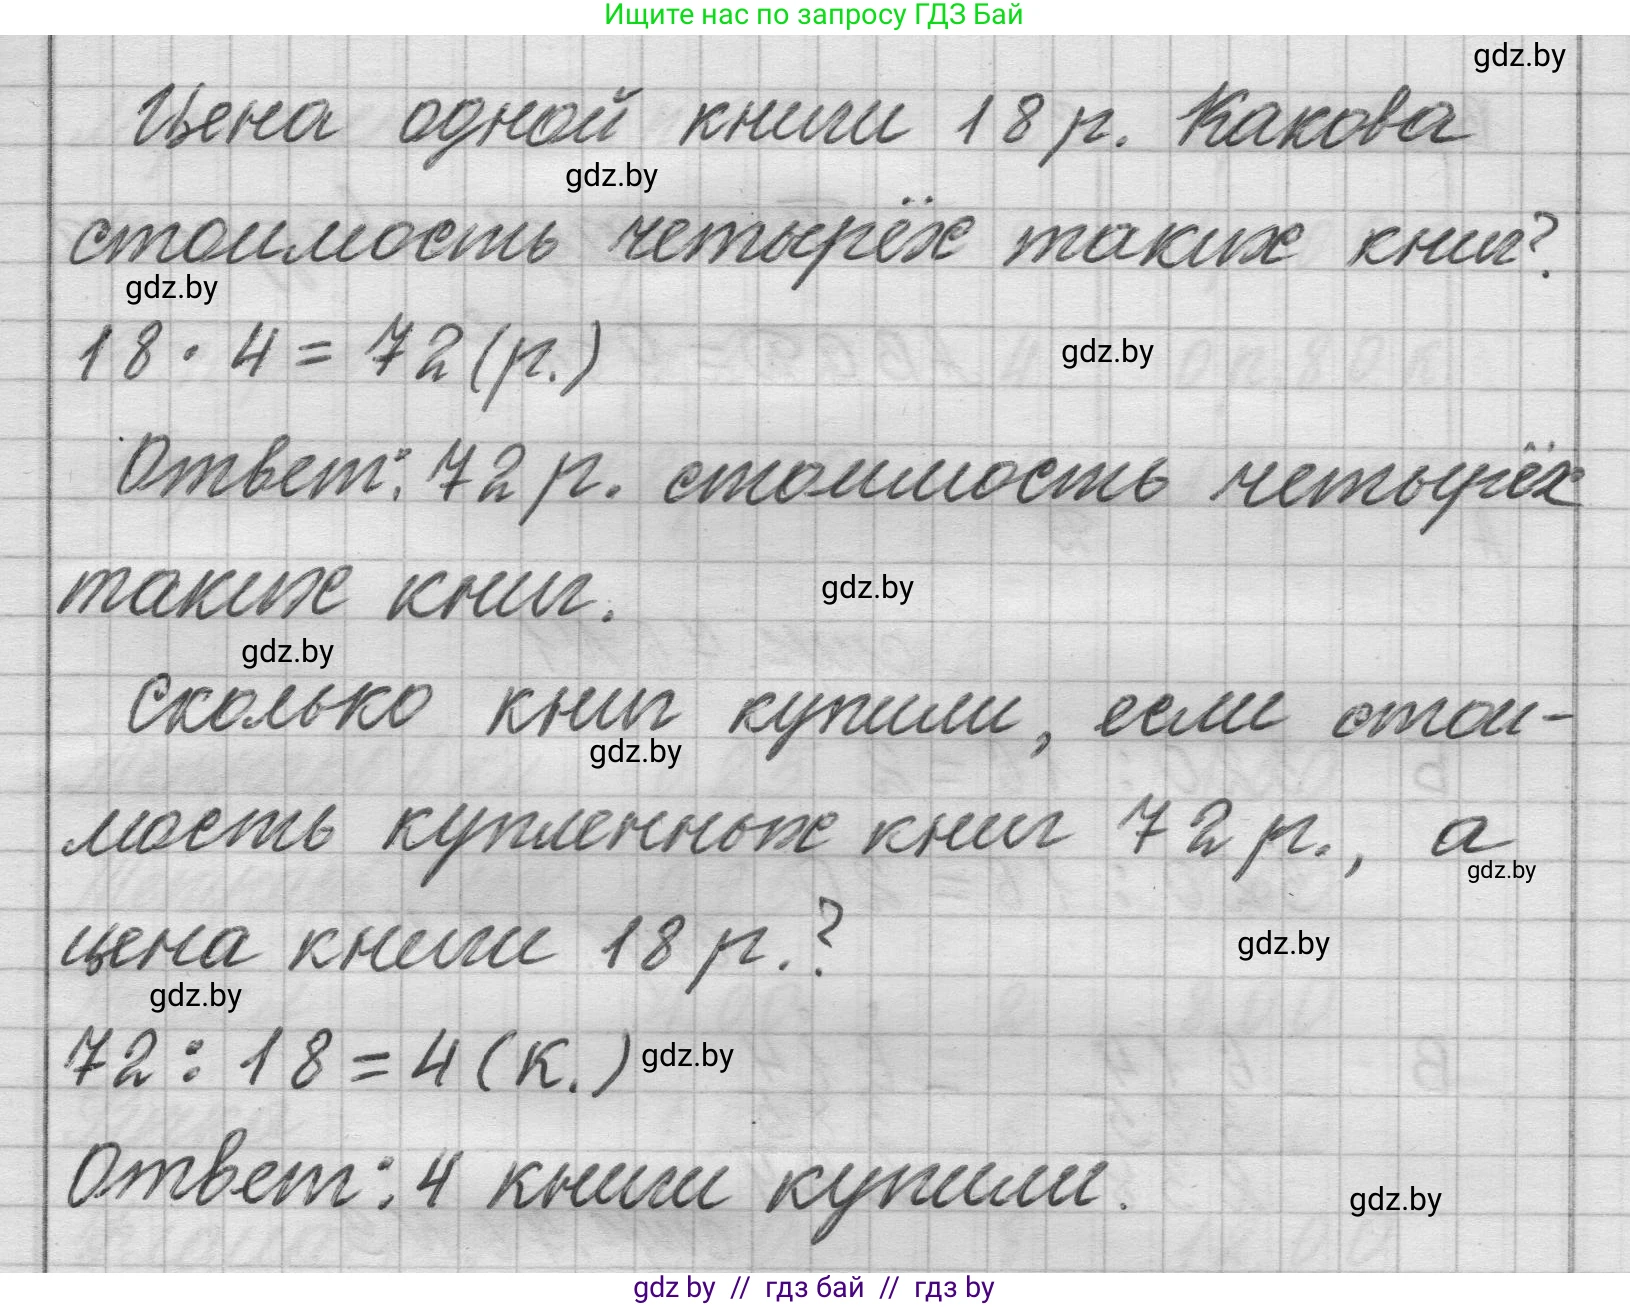 Ищите нас по запросу ГДЗ Бай
gdz.by
Цена одной книги 18 р. Какова
gdz.by
стоимость четырёх таких книг?
gdz.by
18 · 4 = 72 (р.)
gdz.by
Ответ: 72 р. стоимость четырёх
таких книг.
gdz.by
gdz.by
Сколько книг купили, если стои-
gdz.by
мость купленных книг 72 р., а
gdz.by
цена книги 18 р.?
gdz.by
gdz.by
72 : 18 = 4 (к.)
gdz.by
Ответ: 4 книги купили.
gdz.by
gdz by // гдз бай // гдз by